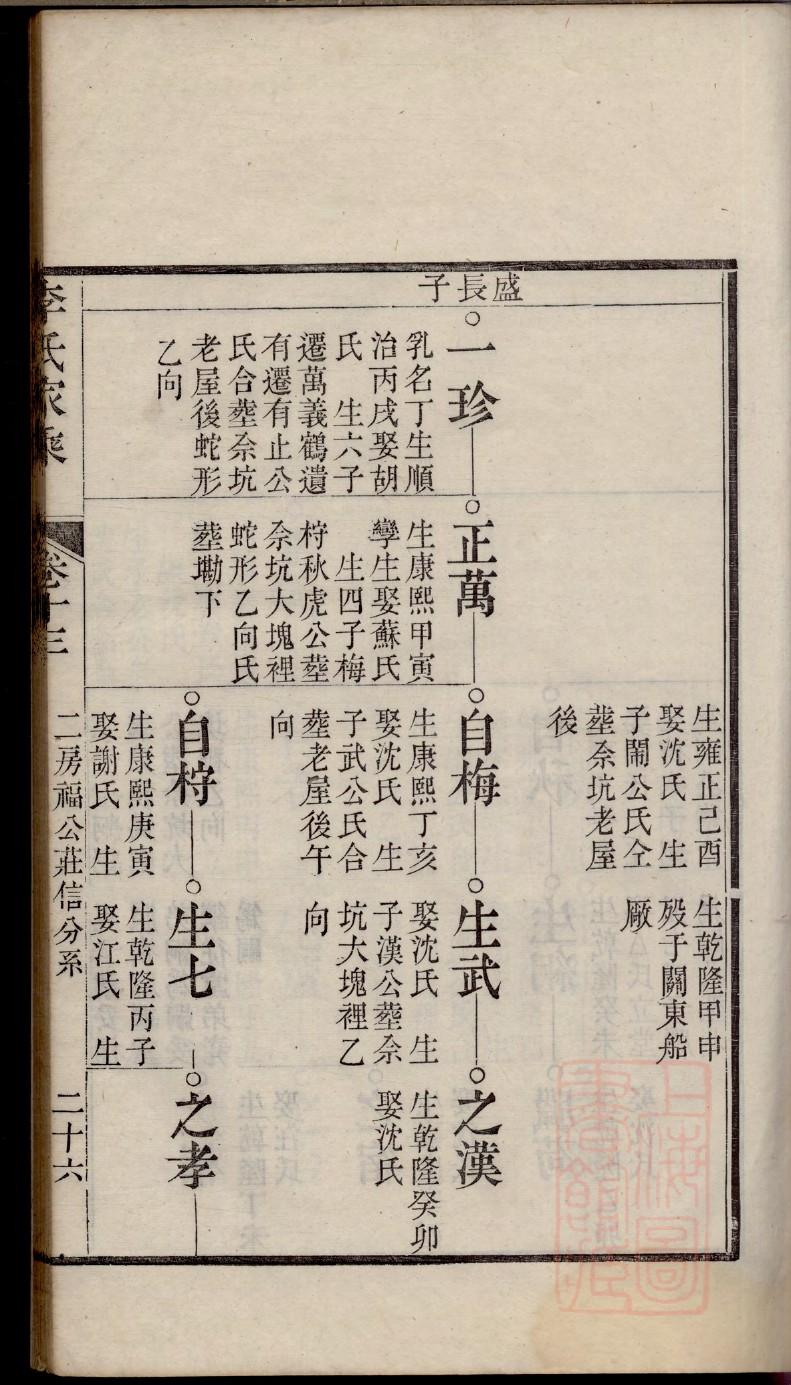 盛長子
生雍正己酉
娶沈氏　生
子閙公氏仝
塟佘坑老屋
後
生乾隆甲申
殁于關東船
厰
一珍
乳名丁生順
治丙戌娶胡
氏　生六子
遷萬義鶴遺
有遷有止公
氏合塟佘坑
老屋後蛇形
乙向
正萬
生康熙甲寅
孿生娶蘇氏
生四子梅
柠秋虎公塟
佘坑大塊裡
蛇形乙向氏
塟墈下
自梅
生康熙丁亥
娶沈氏　生
子武公氏合
塟老屋後午
向
生武
娶沈氏　生
子漢公塟佘
坑大塊裡乙
向
之漢
生乾隆癸卯
娶沈氏
自柠
生康熙庚寅
娶謝氏　生
生七
生乾隆丙子
娶江氏　生
之孝
李氏家乘
卷十三
二房福公莊信分系
二十六
上海圖書館藏